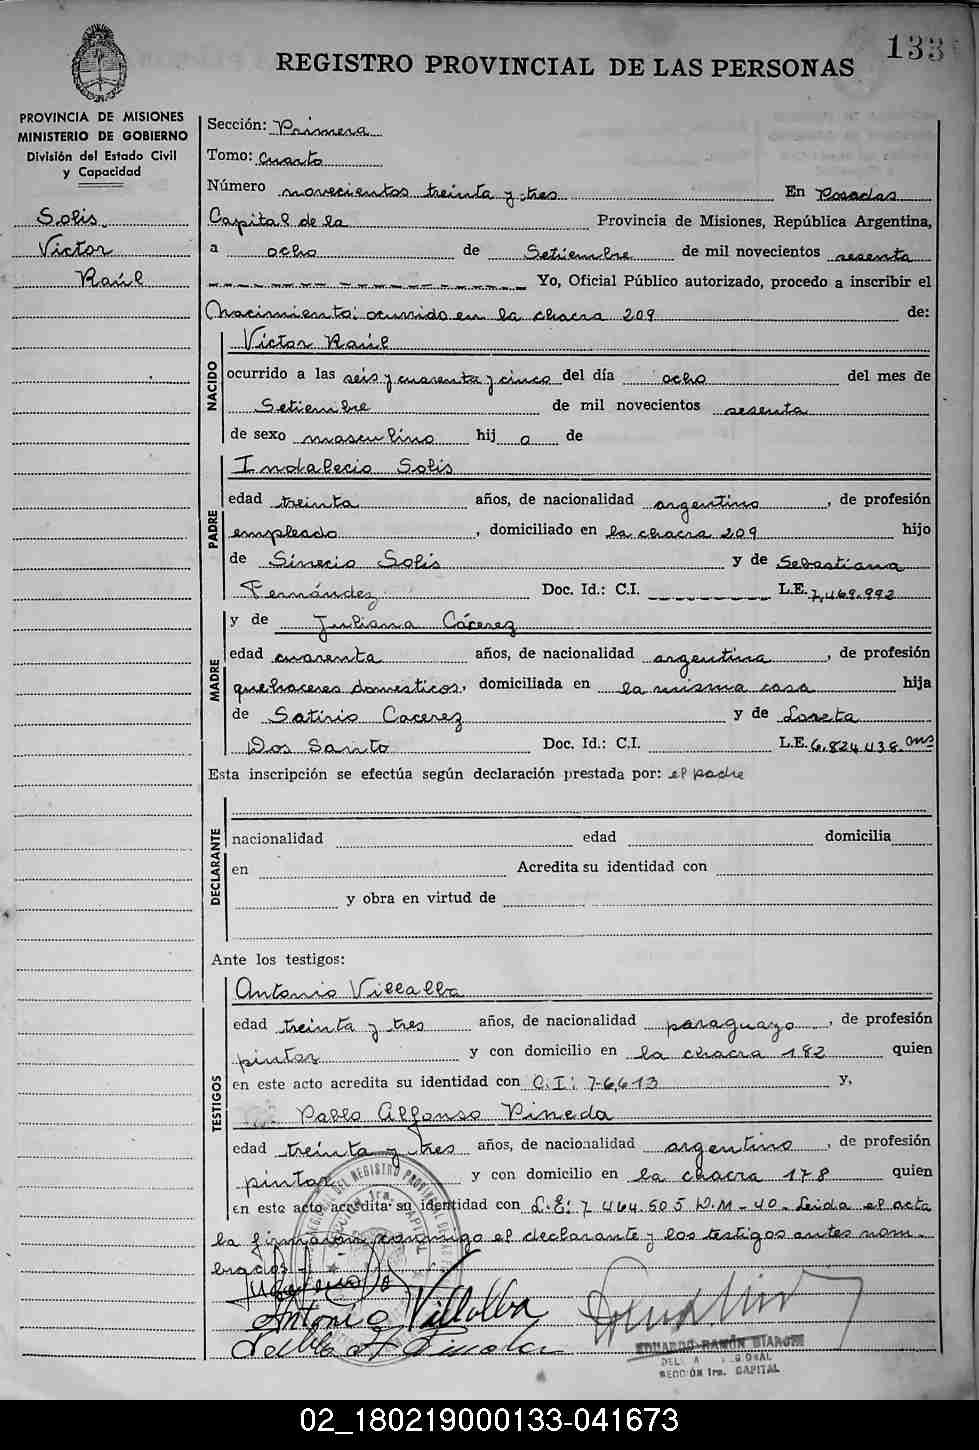 133
REGISTRO PROVINCIAL DE LAS PERSONAS
PROVINCIA DE MISIONES
MINISTERIO DE GOBIERNO
División del Estado Civil
y Capacidad
Solis
Victor
Raúl
Sección: Primera
Tomo: Cuarto
Número novecientos treinta y tres En Posadas
Capital de la Provincia de Misiones, República Argentina,
a ocho de Setiembre de mil novecientos sesenta
Yo, Oficial Público autorizado, procedo a inscribir el
Nacimiento: ocurrido en la chacra 209 de:
NACIDO
Victor Raúl
ocurrido a las seis y cuarenta y cinco del día ocho del mes de
Setiembre de mil novecientos sesenta
de sexo masculino hij o de
PADRE
Indalecio Solis
edad treinta años, de nacionalidad argentino, de profesión
empleado, domiciliado en la chacra 209 hijo
de Sinecio Solis y de Sebastiana
Fernández Doc. Id.: C.I. L.E. 7,469.992
y de Juliana Cácerez
MADRE
edad cuarenta años, de nacionalidad argentina, de profesión
quehaceres domesticos, domiciliada en la misma casa hija
de Satirio Cacerez y de Loreta
Dos Santo Doc. Id.: C.I. L.E. 6.824.438.
Esta inscripción se efectúa según declaración prestada por: el padre
DECLARANTE
nacionalidad edad domicilia
en Acredita su identidad con
y obra en virtud de
Ante los testigos:
TESTIGOS
Antonio Villalba
edad treinta y tres años, de nacionalidad paraguayo, de profesión
pintor y con domicilio en la chacra 182 quien
en este acto acredita su identidad con C.I: 76,613 y,
Pablo Alfonso Pineda
edad treinta y tres años, de nacionalidad argentino, de profesión
pintor y con domicilio en la chacra 178 quien
en este acto acredita su identidad con L.E: 7.464.505 D.M-40- Leida el acta
la firmaron conmigo el declarante y los testigos antes nom-
brados.-
Antonio Villalba
EDUARDO RAMÓN BIANCHI
SECCIÓN 1ra. CAPITAL
02_180219000133-041673